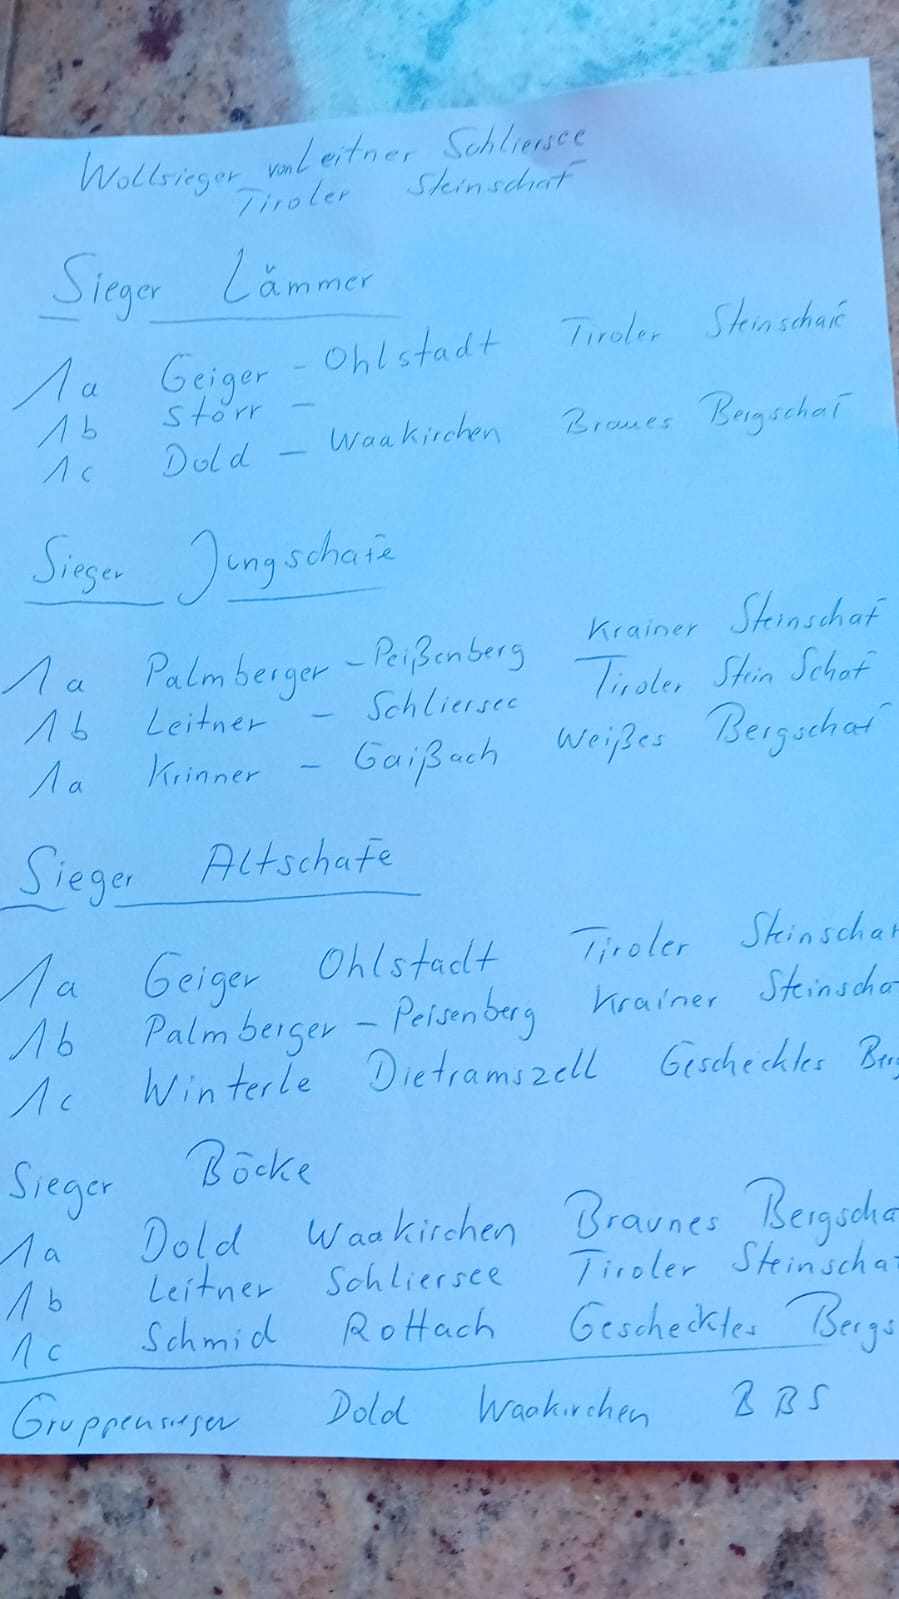 Wollsieger von Leitner Schliersee
Tiroler Steinschaf
Sieger Lämmer
1a Geiger - Ohlstadt Tiroler Steinschaf
1b Störr -
1c Dold - Waakirchen Braunes Bergschaf
Sieger Jungschafe
1a Palmberger - Peißenberg Krainer Steinschaf
1b Leitner - Schliersee Tiroler Stein Schaf
1a Krinner - Gaißach Weißes Bergschaf
Sieger Altschafe
1a Geiger Ohlstadt Tiroler Steinscha
1b Palmberger - Peisenberg Krainer Steinscha
1c Winterle Dietramszell Geschecktes Berg
Sieger Böcke
1a Dold Waakirchen Braunes Bergscha
1b Leitner Schliersee Tiroler Steinscha
1c Schmid Rottach Geschecktes Bergs
Gruppensieger Dold Waakirchen BBS